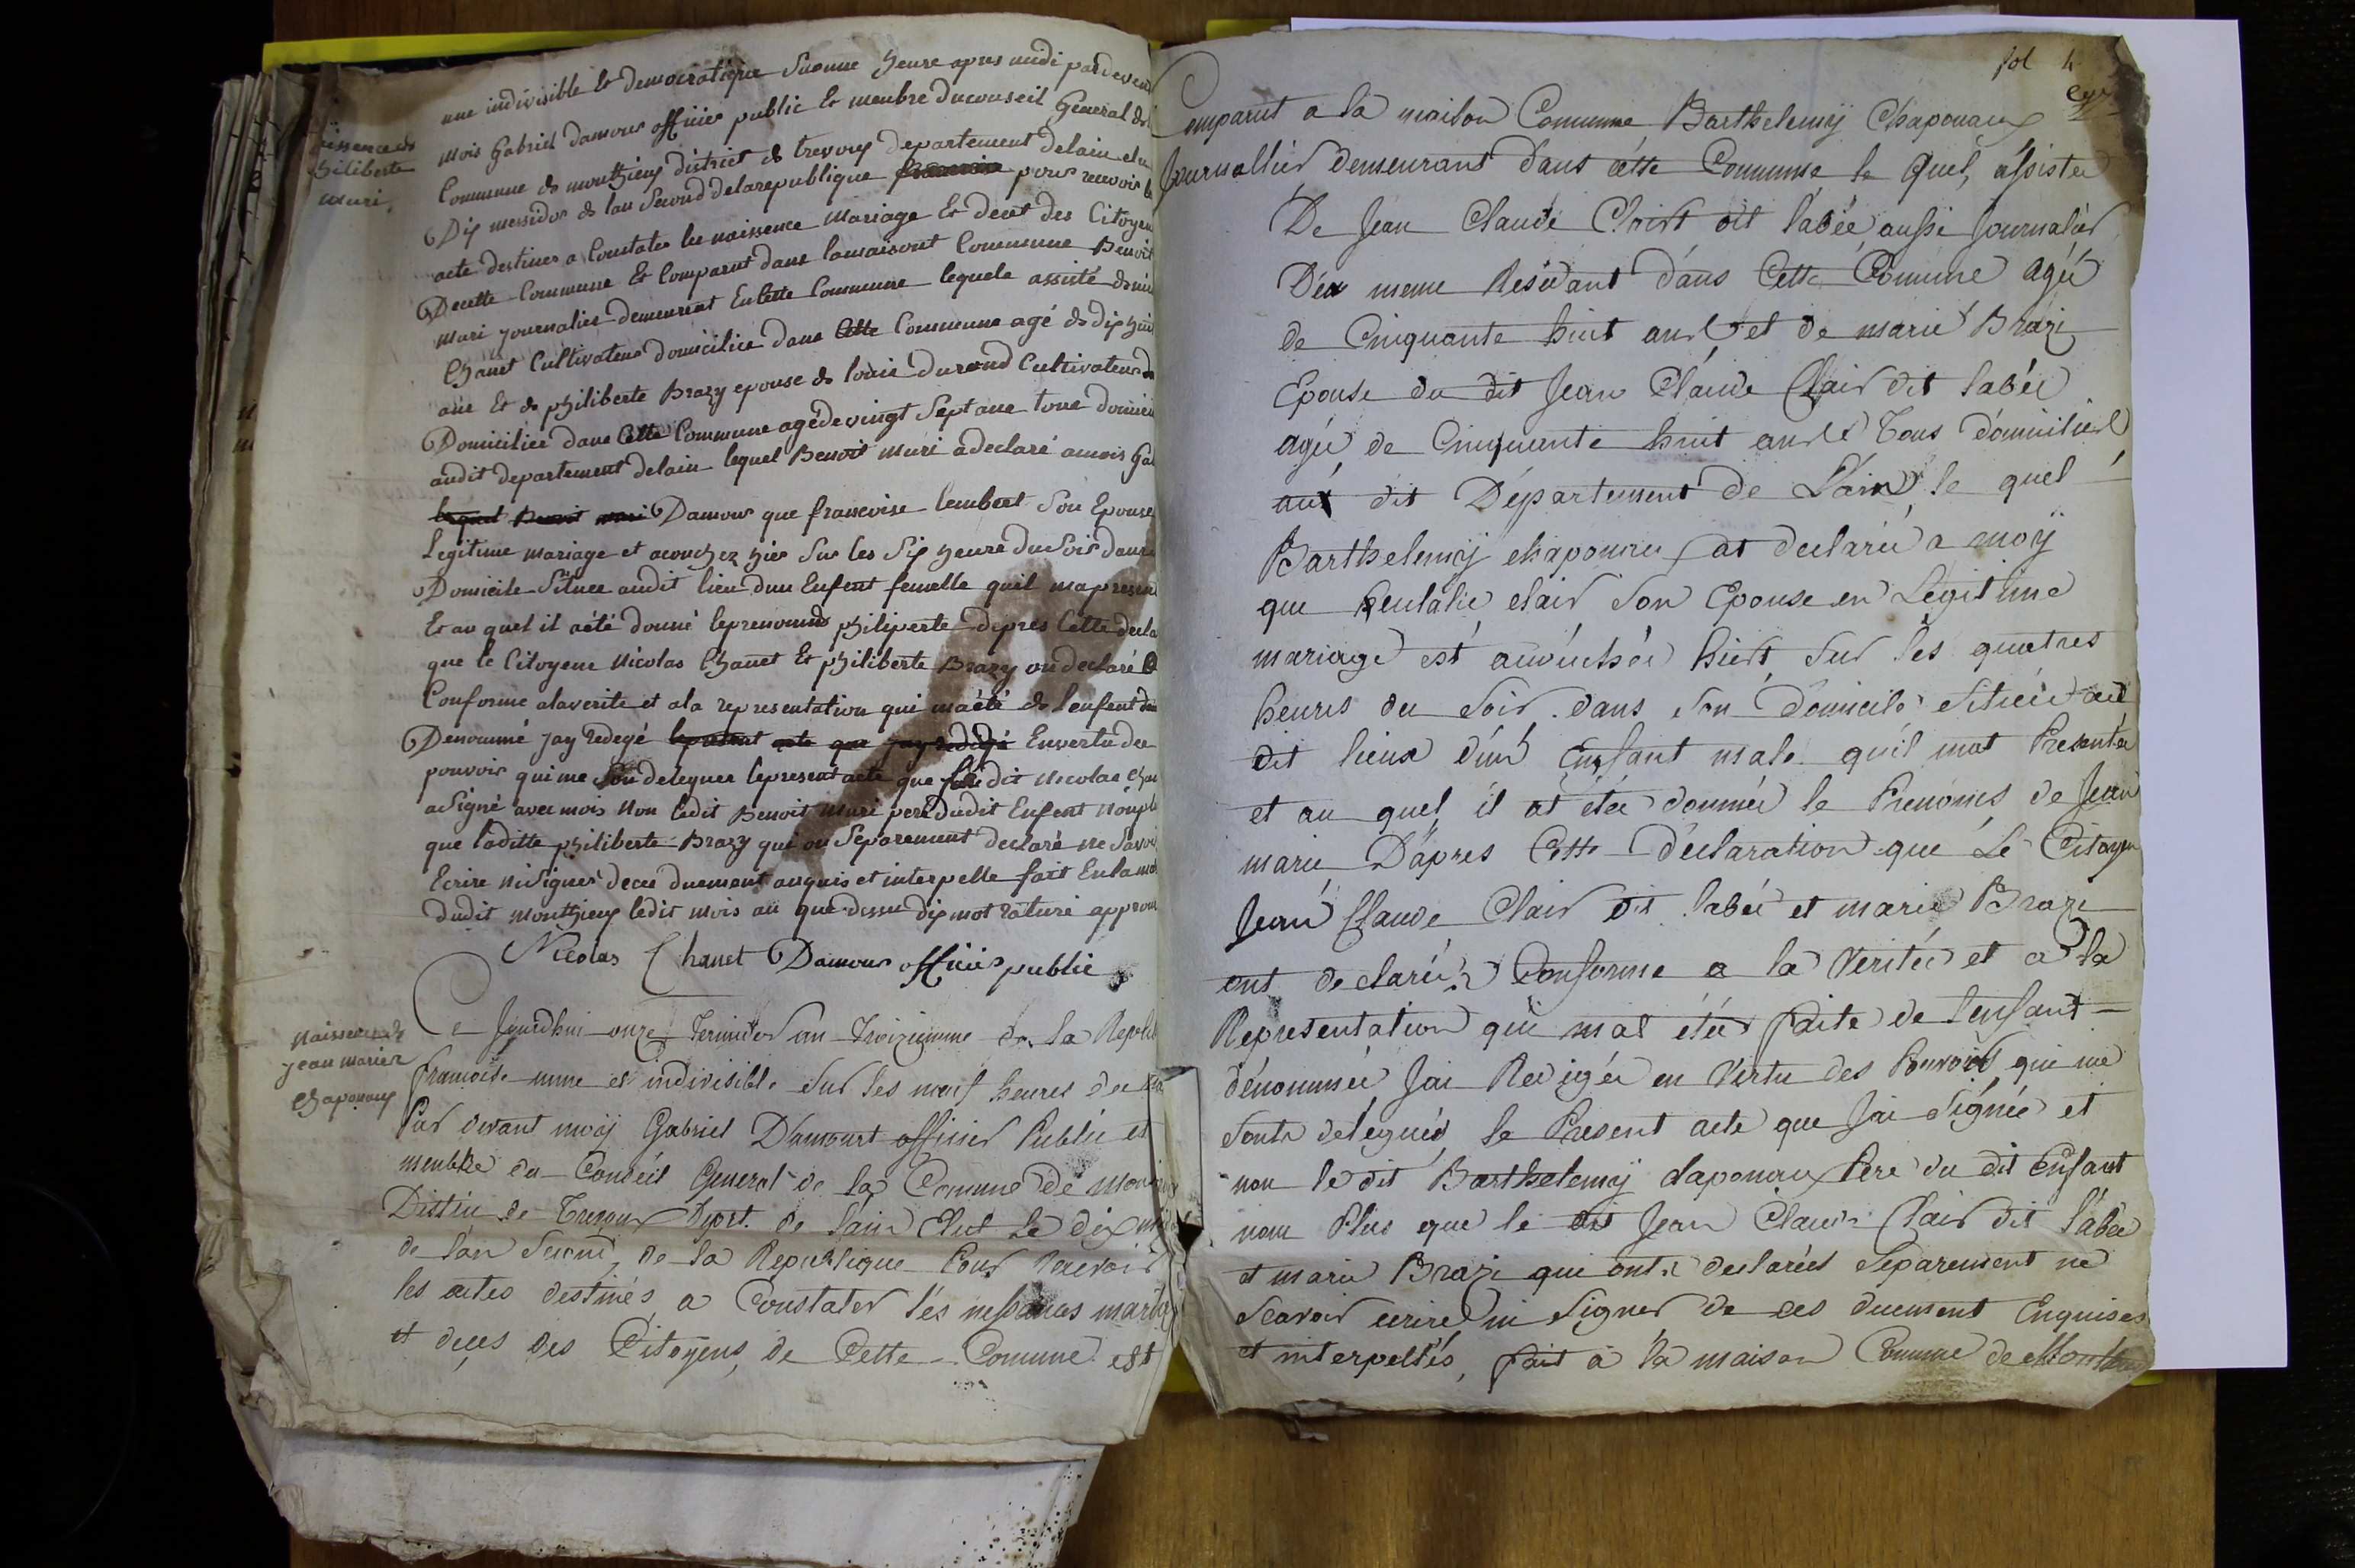 une indivisible et democratique Su onne heure apres midi pardevent
mois Gabriel damour officier public et membre du conseil Géneral de
Commune de monthieux district de trevoux departement delain elu
Dix messidor de lan Second delarepublique francoise pour recevoir le
acte destines a Constater les naissence mariage Et decet des Citoyen
Decette Commune Et Comparut dans lamaisont Commune Benoit
muri journalier demeurent En Cette Commune lequele assisté de ni
Chanet Cultivateur domicilie dans Cette Commune agé de dix huit
ans Et de philiberte Brazy epouse de louis durand Cultivateur
Domiciliée dans Cette Commune agé de vingt Sept ans tous domici
audit departement delain lequel Benoit muri adeclaré amois Ga
lequel Benoit muri Damour que francoise lembert Son Epouse
Legitime mariage et acouchez hier Sur les Six heure du Soir dans
Domicile Situee audit lieu dun Enfent femelle quil ma presen
Et au quel il aété donné leprenoms philiperte depres Cette decla
que le Citoyene Nicolas Chanet Et philiberte Brazy on declaré
Conforme alaverite et ala representation qui ma été de lenfent
Denommé jay Redegé lepresent acte que jay redigé Envertu des
pouvoir qui me Son deleguer lepresent acte que ledit Nicolas Cha
aSigné avec mois Non ledit Benoit Muri pere dudit Enfent Nonpl
que laditte philiberte Brazy qui on Separement declaré ne Savoi
Ecrire ni Signer decee duement anquis et interpelle fait En la mai
dudit monthieux ledit mois an que dessu dix mot raturé approu
Nicolas Chanet Damour officier public
naissence de
philiberte
muri
Naissence de
jean marie
Chapouoy
Ce Jourdhui onze Termidor lan Troizieme de la Republ
francoise unne et indivisible Sur les neuf heures du
Par devant moÿ Gabriel Damourt officier Public et
membre du Conseil General de la Comune de Mon
Distric de Trevoux Dept. de lain Elut le dix m
de lan Second, de la Republique Pour Recevoir
les actes destinés a Constater lés nessances maria
et deces des Citoyens, de Cette Comune est
fol 4
Comparut a la maison Commune Barthelemÿ Chapououx
Journallier demeurant dans cétte Commune le quel, assistée
De Jean Claude Clairt dit labée aussi Journalier
Déa meme Résidant dans Cette Comune agéé
de Cinquante huit ans et de marie Brazi
Epouse du dit Jean Claude Clair dit labée
agée de Cinquante huit ans Tous domicilies
aux dit Département de Lain le quel
Barthelemÿ chapououx at declarée a moÿ
que heulalie clair Son Epouse en Legitime
mariage est accouchée hiert Sur les quatres
heures du Soir dans Son domicile Situéé au
dit lieux dun Enfant male quil mat Presentée
et au quel il at étée donnée le Prenoms de Jean
marie Dápres Cette déclaration que Le Citoyen
Jean Claude Clair dit labée et marie Brazi
ont declarée Conforme a la Veritée et a la
Representation qui mat étée faite de lenfant
dénommée Jai Redigée en Vertu des Pouvoirs qui me
Sont delegués le Present acte que Jai Signée et
non le dit Barthelemÿ chapououx Pere du dit Enfant
nom Plus que le dit Jean Claude Clair dit labée
et marie Brazi qui ont declarées Séparement ne
Scavoir ecrire ni Signer de ces duement Enquises
et interpellés, fait a la maison Commune de Monthieux